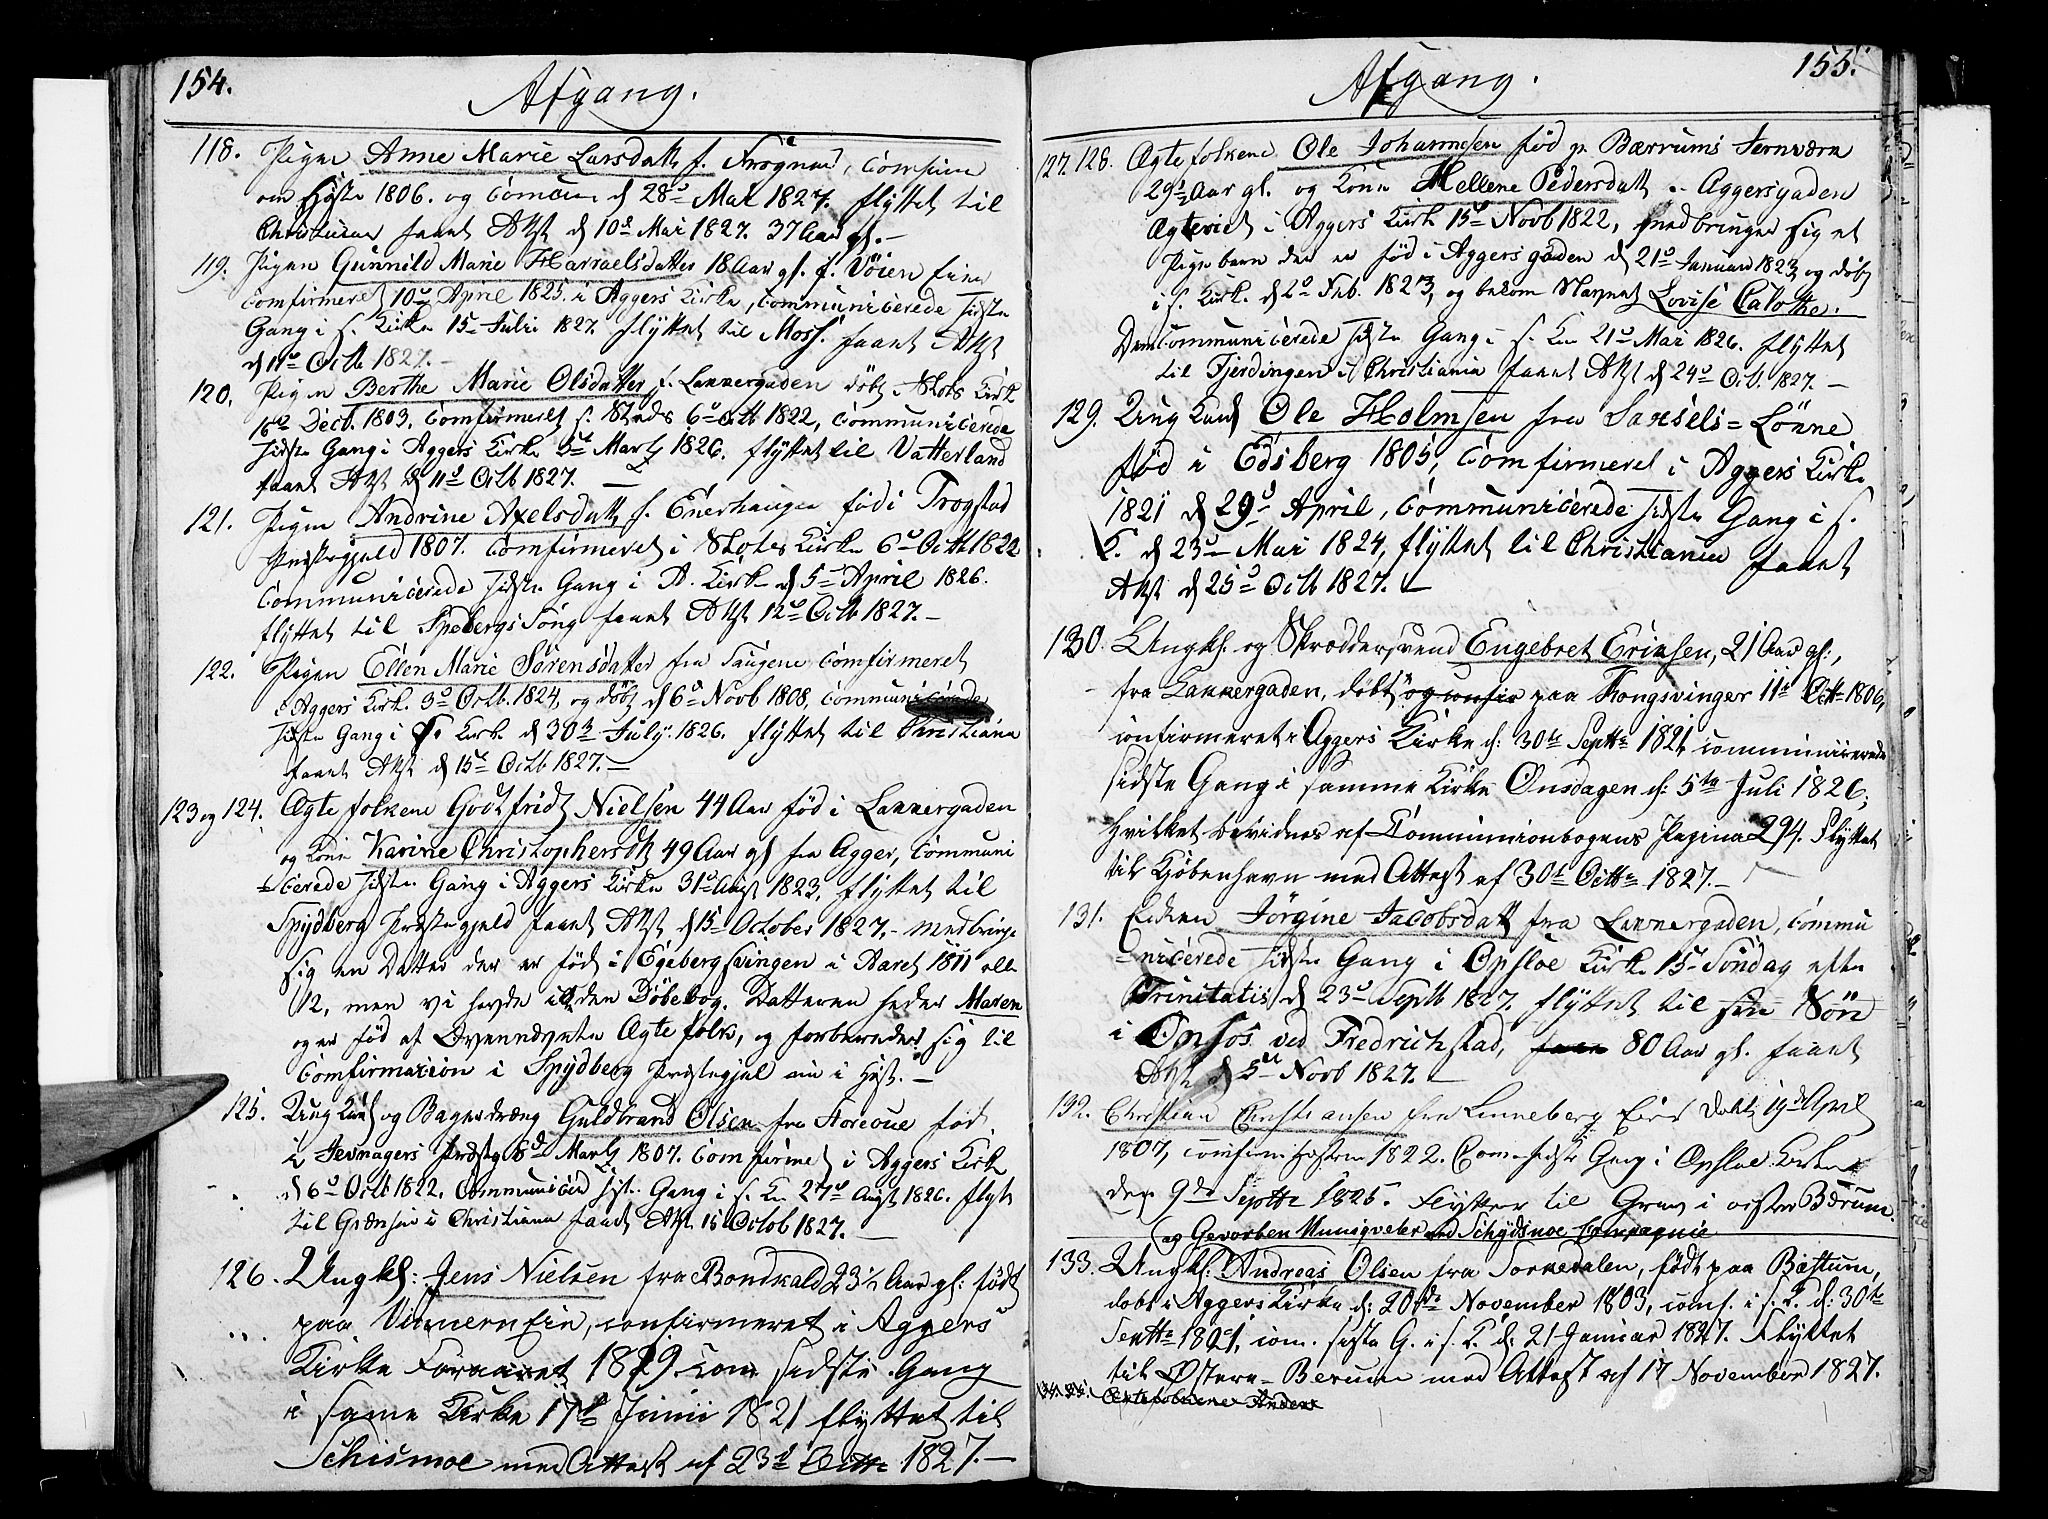 154.
Afgang.
118. Pigen Anne Marie Larsdatt f. Frogner, Comfirme
om Høste 1806. og Comun d 28de Mai 1827. flyttet til
Christiania faaet Attst d 10de Mai 1827. 37 Aar gl.
119. Pigen Gunnild Marie Harraelsdatter 18 Aar gl. f. Vöien Eie
Comfirmeret 10de April 1825. i Aggers Kirke, Communicerede sidste
Gang i s. Kirke 15 Juli 1827. flyttet til Moss. faaet Attst
d 11te Octb 1827.
120. Pigen Berthe Marie Olsdatter f. Lakkergaden döbt i Slots Kirk
16de Dect. 1803. Comfirmeret s. Steds 6te Octb 1822, Communicerede
sidste Gang i Aggers Kirke 5te Marts 1826. flyttet til Vatterland
faaet Attst d 11te Octb 1827.
121. Pigen Andrine Axelsdatt f. Enerhaugen föd i Trogstad
Præstegjeld 1807. Comfirmeret i Slotes Kirke 6te Octb 1822
Communicerede sidste Gang i A. Kirke d 5te April 1826.
flyttet til Spebergs Song faaet Attst 12te Octb 1827.
122. Pigen Ellen Marie Sörensdatter fra Saugene Comfirmeret
i Aggers Kirk. 3de Octb. 1824, og döbt d 6te Novb 1808, Communicerede
sidste Gang i s. Kirk d 30te July 1826. flyttet til Christiania
faaet Attst d 15de Octb 1827.
123 og 124. Ægtefolkene Godtfridt Nielsen 44 Aar föd i Lakkergaden
og Kone Karine Christophersdt 49 Aar gl fra Agger, Communi
cerede sidste Gang i Aggers Kirke 31te Augst 1823, flyttet til
Spydberg Præstegjeld faaet Attst d 15 October 1827, medbringe
sig en Datter der er född i Egebergsvingen i Aaret 1811 elle
12, men vi havde i den Döbebog. Datteren heder Maren
og er föd af Ovennævnte Ægtefolk, og forbereder sig til
Comfirmacion i Spydberg Præstegjel nu i Höst.
125. Ung Karl og Bagerdræng Guldbrand Olsen fra föd
i Jevnagers Præstg 8de Marts 1807. Comfirmet i Aggers Kirk
d 6te Octb 1822. Communicied sidst Gang i s. K 27de Augst 1826. flyt
til Grændsen i Christiana faaet Attst 15 Octob 1827.
126. Ungkl: Jens Nielsen fra Bondkald 23½ Aar gl: født
paa Vinneren Eie, confirmeret i Aggers
Kirke Foraaret 1819. com sidste Gang
i same Kirke 17de Junii 1821 flyttet til
Schismoe med Attest af 23de Octb 1827.
155.
Afgang.
127. 128. Ægtefolkene Ole Johannesen föd p Bærrums Jernværk
29 Aar gl. og Kone Hellene Pedersdatt Aggersgaden
Ægteviet i Aggers Kirk 15de Novb 1822, medbringer sig et
Pigebarn der er föd i Aggersgaden d 21de Januar 1823 og döbt
i s. Kirk. d 2de Feb. 1823, og bekom Navnet Lovise Calotte.
Dem Communicerede sidste Gang i s. K 21de Mai 1826. flyttet
til Fjerdingen i Christiania faaet Attst d 24de Octb. 1827.
129. Ung Karl Ole Holmsen fra Sanséls= Lönne
föd i Edsberg 1805, Comfirmeret i Aggers Kirke
1821 d 29de April, Communicerede sidste Gang i s.
K. d 23de Mai 1824, flyttet til Christianien faaet
Attst d 25de Octb 1827.
130. Ungkl. og Skræddersvend Engebret Eriksen, 21 Aar gl:,
fra Lakkergaden, döbt og confir paa Kongsvinger 11te Octb 1806,
confirmeret i Aggers Kirke d: 30te Septbr 1821, communicerede
sidste Gang i samme Kirke Onsdagen d: 5te Juli 1826,
hvilket bevidnes af Communionbogens Pagina 294. flyttet
til Kjöbenhavn med Attest af 30te Octbr 1827.
131. Enken Jörgine Jacobsdatt fra Lakkergaden, Commu
nicerede sidste Gang i Opsloe Kirke 15 Söndag efter
Trinitatis d 23de Septb 1827. flyttet til sin Sön
i Onsos ved Fredrichstad, faae 80 Aar gl. faaet
Attst d 5te Novb 1827.
132. Christian Christiansen fra Linneberg Eie Döbt 19de April
1807, comfirm Hösten 1822. Com. sidste Gang i Opsloe Kirke
den 9de Septbr 1825. Flytter til Grav i vestre Bærum.
og Gevorben Munsqveter ved Schydsmoe Compagnie
133. Ungkl. Andreas Olsen fra Sorkedalen, født paa Bæstum,
döbt i Aggers Kirke d: 20de November 1803, comf. i s. K. d: 30te
Septbr 1821, com. sidste G. i s. K. d: 21 Januar 1827. Flyttet
til Østere-Berum med Attest af 17 November 1827.
Ægtefolkene Anders